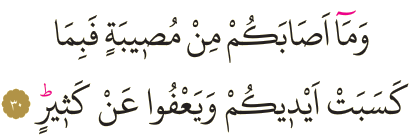 وَمَٓا اَصَابَكُمْ مِنْ مُص۪يبَةٍ فَبِمَا
كَسَبَتْ اَيْد۪يكُمْ وَيَعْفُوا عَنْ كَث۪يرٍۜ ﴿٣٠﴾